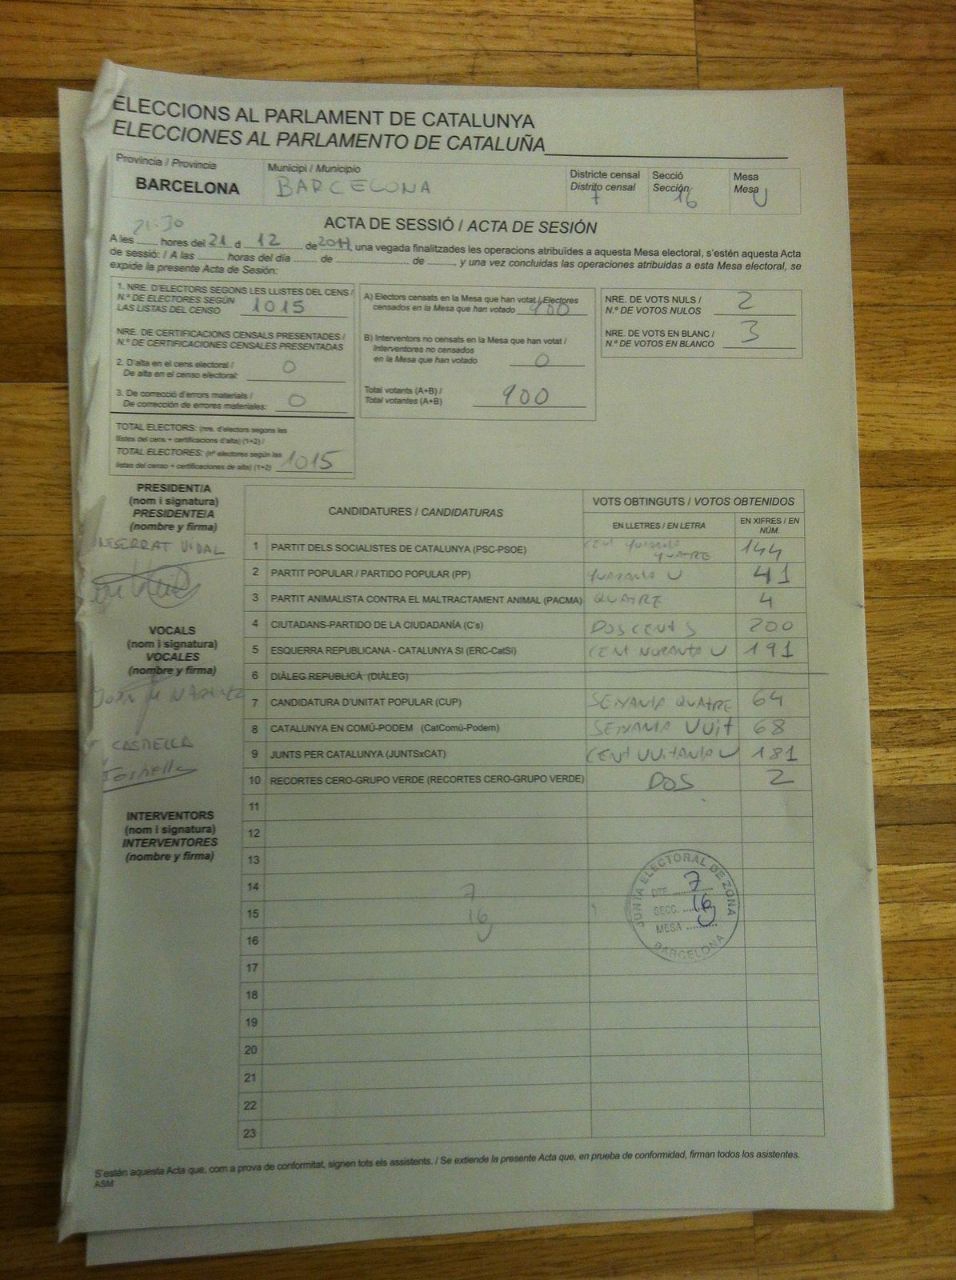 ELECCIONS AL PARLAMENT DE CATALUNYA
ELECCIONES AL PARLAMENTO DE CATALUÑA
Província / Provincia
BARCELONA
Municipi / Municipio
BARCELONA
Districte censal
Distrito censal
7
Secció
Sección
16
Mesa
Mesa
U
ACTA DE SESSIÓ / ACTA DE SESIÓN
21:30
A les ...... hores del 21 d 12 de 2017 una vegada finalitzades les operacions atribuïdes a aquesta Mesa electoral, s'estén aquesta Acta
de sessió: / A las ...... horas del día ...... de ...... de ......, y una vez concluidas las operaciones atribuidas a esta Mesa electoral, se
expide la presente Acta de Sesión:
1. NRE. D'ELECTORS SEGONS LES LLISTES DEL CENS /
N.º DE ELECTORES SEGÚN
LAS LISTAS DEL CENSO 1015
NRE. DE CERTIFICACIONS CENSALS PRESENTADES /
N.º DE CERTIFICACIONES CENSALES PRESENTADAS
2. D'alta en el cens electoral /
De alta en el censo electoral: 0
3. De correcció d'errors materials /
De corrección de errores materiales: 0
TOTAL ELECTORS: (nre. d'electors segons les
llistes del cens + certificacions d'alta) (1+2) /
TOTAL ELECTORES: (nº electores según las
listas del censo + certificaciones de alta) (1+2) 1015
A) Electors censats en la Mesa que han votat / Electores
censados en la Mesa que han votado 900
B) Interventors no censats en la Mesa que han votat /
Interventores no censados
en la Mesa que han votado 0
Total votants (A+B) /
Total votantes (A+B) 900
NRE. DE VOTS NULS /
N.º DE VOTOS NULOS 2
NRE. DE VOTS EN BLANC /
N.º DE VOTOS EN BLANCO 3
PRESIDENT/A
(nom i signatura)
PRESIDENTE/A
(nombre y firma)
VIDAL
VOCALS
(nom i signatura)
VOCALES
(nombre y firma)
CASTELLA
INTERVENTORS
(nom i signatura)
INTERVENTORES
(nombre y firma)
CANDIDATURES / CANDIDATURAS
VOTS OBTINGUTS / VOTOS OBTENIDOS
EN LLETRES / EN LETRA
EN XIFRES / EN
NÚM.
1 PARTIT DELS SOCIALISTES DE CATALUNYA (PSC-PSOE) CENT QUARANTA QUATRE 144
2 PARTIT POPULAR / PARTIDO POPULAR (PP) QUARANTA U 41
3 PARTIT ANIMALISTA CONTRA EL MALTRACTAMENT ANIMAL (PACMA) QUATRE 4
4 CIUTADANS-PARTIDO DE LA CIUDADANÍA (C's) DOS CENTS 200
5 ESQUERRA REPUBLICANA - CATALUNYA SÍ (ERC-CatSí) CENT NORANTA U 191
6 DIÀLEG REPUBLICÀ (DIÀLEG)
7 CANDIDATURA D'UNITAT POPULAR (CUP) SEIXANTA QUATRE 64
8 CATALUNYA EN COMÚ-PODEM (CatComú-Podem) SEIXANTA VUIT 68
9 JUNTS PER CATALUNYA (JUNTSxCAT) CENT VUITANTA U 181
10 RECORTES CERO-GRUPO VERDE (RECORTES CERO-GRUPO VERDE) DOS 2
11
12
13
14
15
16
17
18
19
20
21
22
23
7
16
U
JUNTA ELECTORAL DE ZONA
DTE. 7
SECC. 16
MESA U
BARCELONA
S'estén aquesta Acta que, com a prova de conformitat, signen tots els assistents. / Se extiende la presente Acta que, en prueba de conformidad, firman todos los asistentes.
ASM